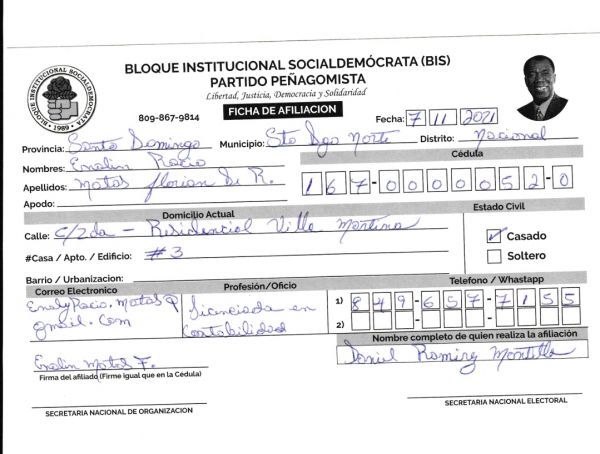 BLOQUE INSTITUCIONAL SOCIALDEMÓCRATA (BIS)
PARTIDO PEÑAGOMISTA
Libertad, Justicia, Democracia y Solidaridad
BLOQUE INSTITUCIONAL SOCIALDEMOCRATA
• 1989 •
809-867-9814
FICHA DE AFILIACION
Fecha: 7 | 11 | 2021
Provincia: Santo Domingo Municipio: Sto Dgo Norte Distrito: Nacional
Nombres: Enalin Rocio
Cédula
Apellidos: Matos florian de R. 167-0000052-0
Apodo:
Domicilio Actual Estado Civil
Calle: C/2da - Residencial Villa
Casado
#Casa / Apto. / Edificio: #3
Soltero
Barrio / Urbanizacion:
Correo Electronico Profesión/Oficio Telefono / Whastapp
gmail.com
Licenciada en
Contabilidad
1) 849-657-7155
2)
Nombre completo de quien realiza la afiliación
Daniel Ramirez Montilla
Enalin Matos F.
Firma del afiliado (Firme igual que en la Cédula)
SECRETARIA NACIONAL DE ORGANIZACION
SECRETARIA NACIONAL ELECTORAL